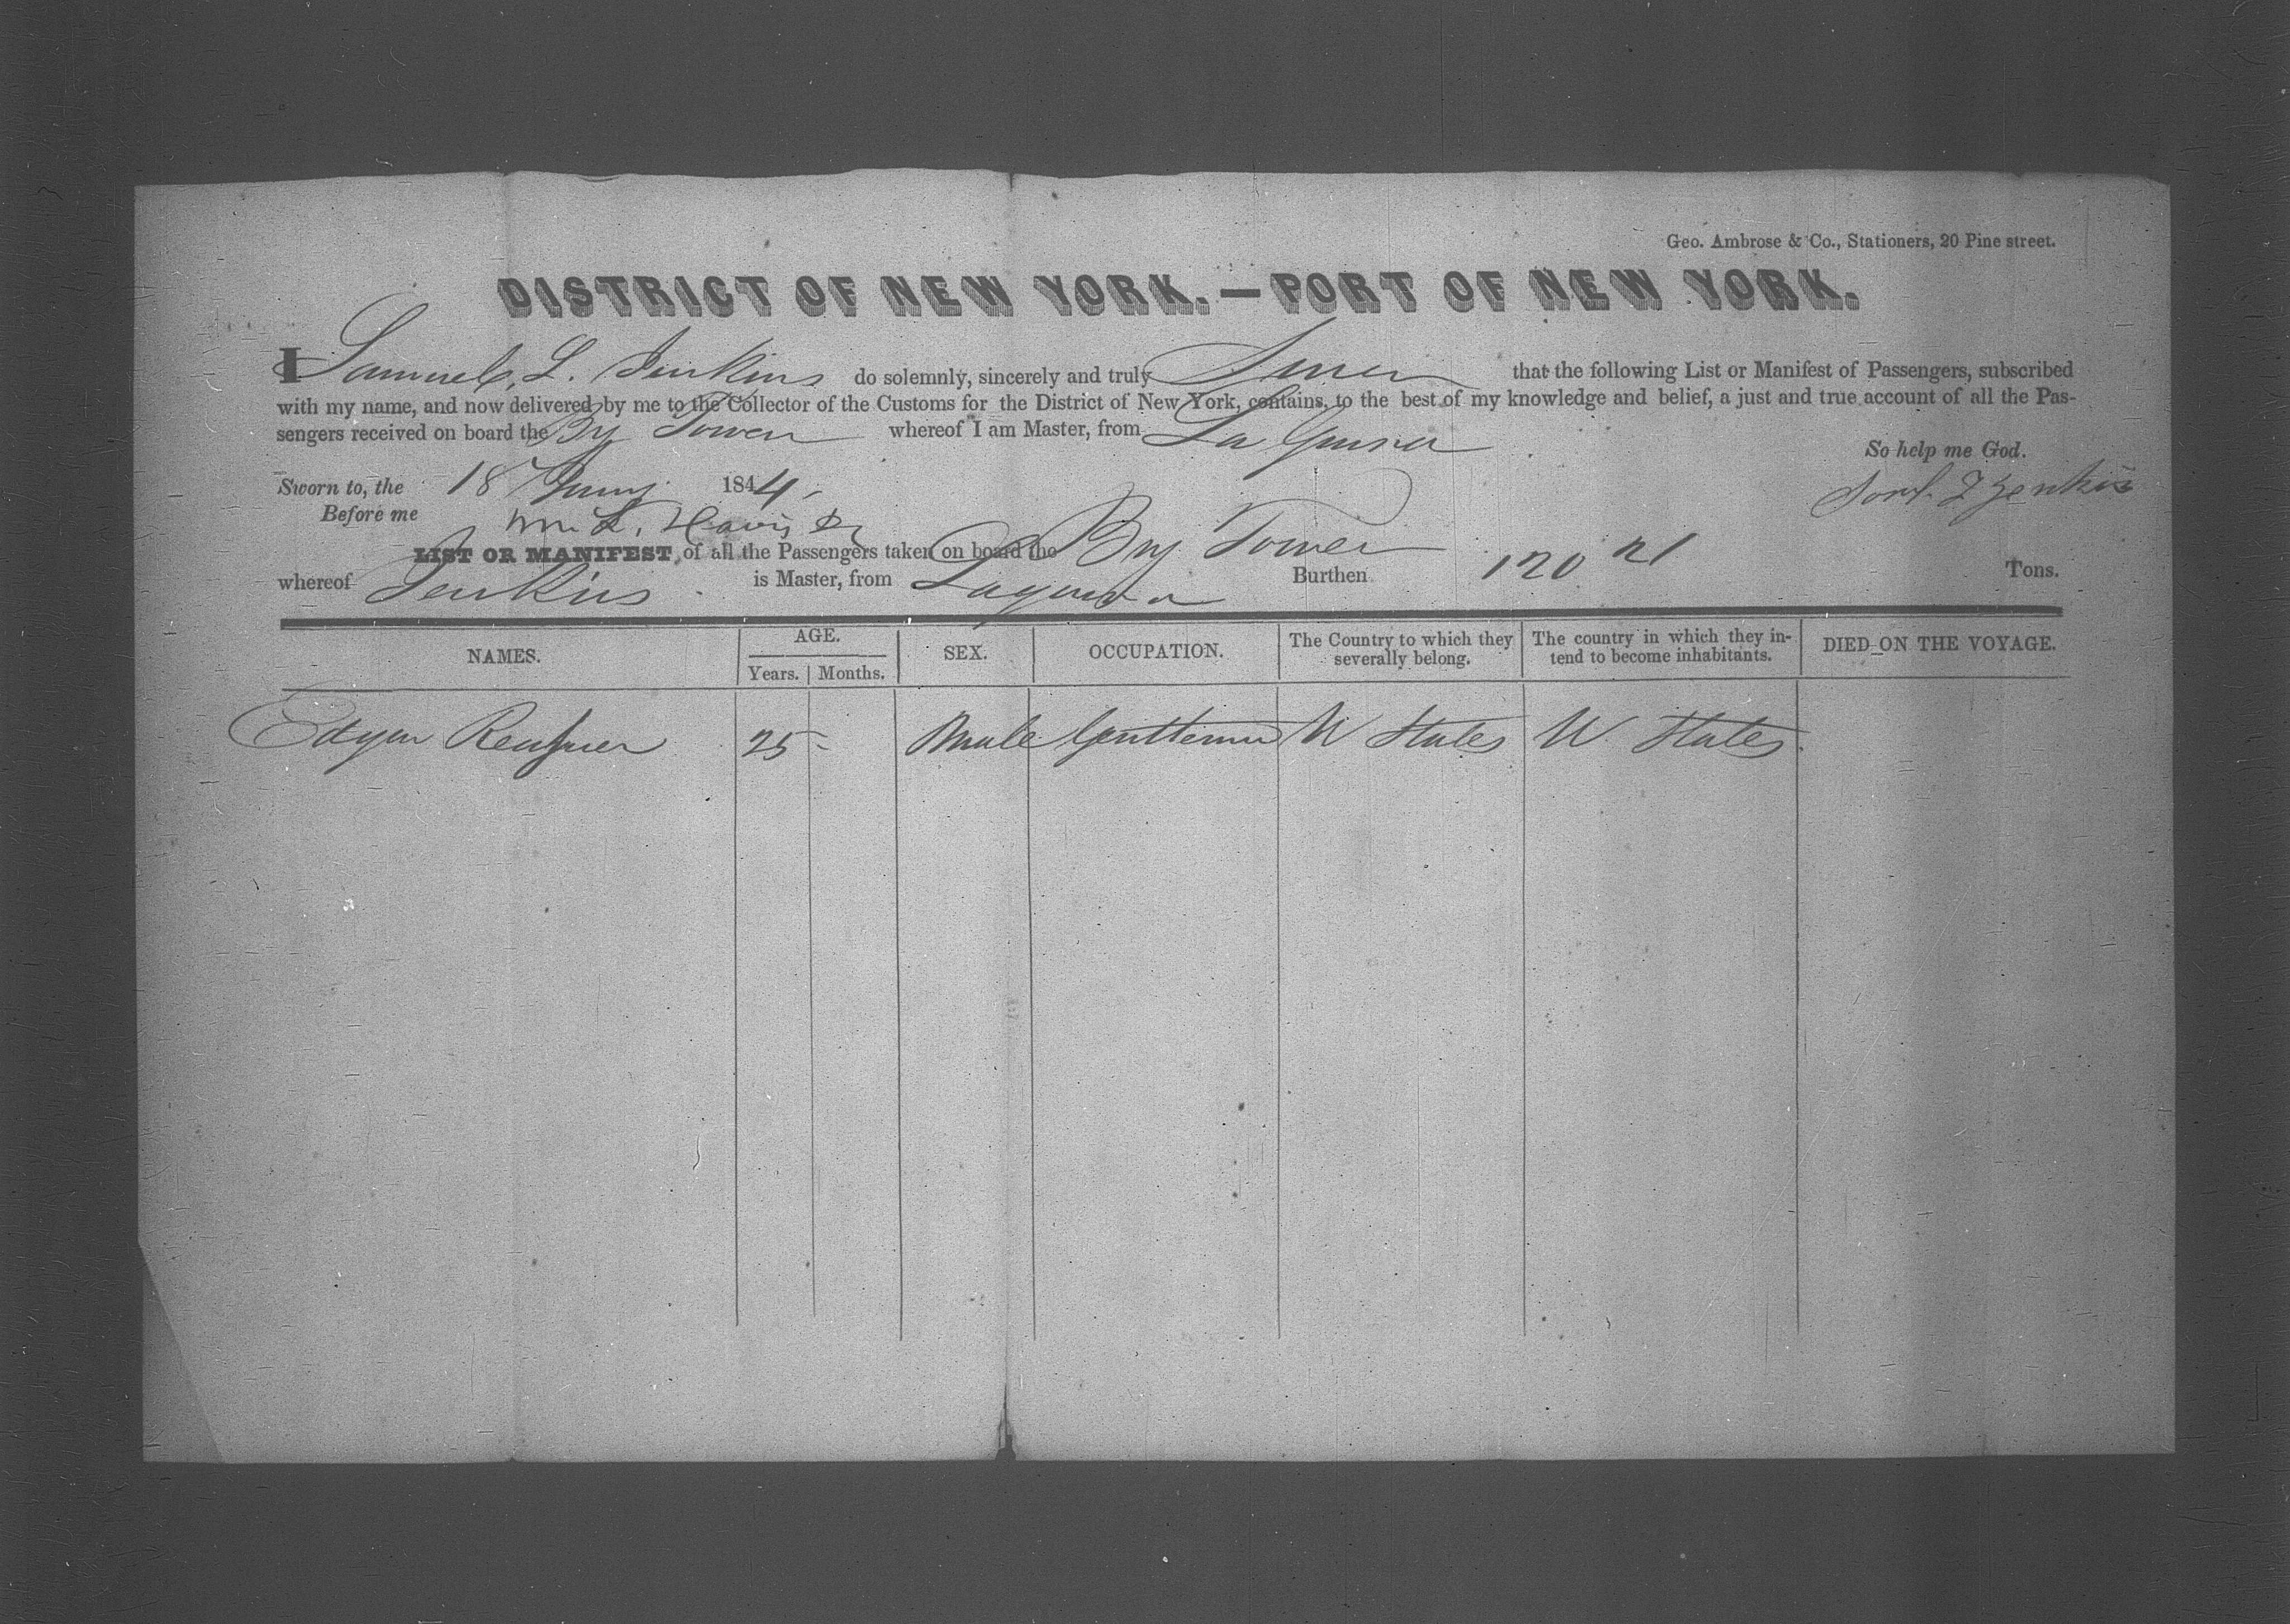 Geo. Ambrose & Co., Stationers, 20 Pine street.
DISTRICT OF NEW YORK.—PORT OF NEW YORK.
I Samuel, L. Jenkins do solemnly, sincerely and truly Swear that the following List or Manifest of Passengers, subscribed
with my name, and now delivered by me to the Collector of the Customs for the District of New York, contains, to the best of my knowledge and belief, a just and true account of all the Pas-
sengers received on board the Brg Tower whereof I am Master, from La Guira
So help me God.
Sworn to, the 18 1844,
Jenkins
Before me
LIST OR MANIFEST, of all the Passengers taken on board the Brg Tower
whereof Jenkins is Master, from Laguira Burthen 120 Tons.
NAMES. AGE. Years. Months. SEX. OCCUPATION. The Country to which they severally belong. The country in which they in-tend to become inhabitants. DIED ON THE VOYAGE.
Edgar 25 - Male Gentleman U States U States